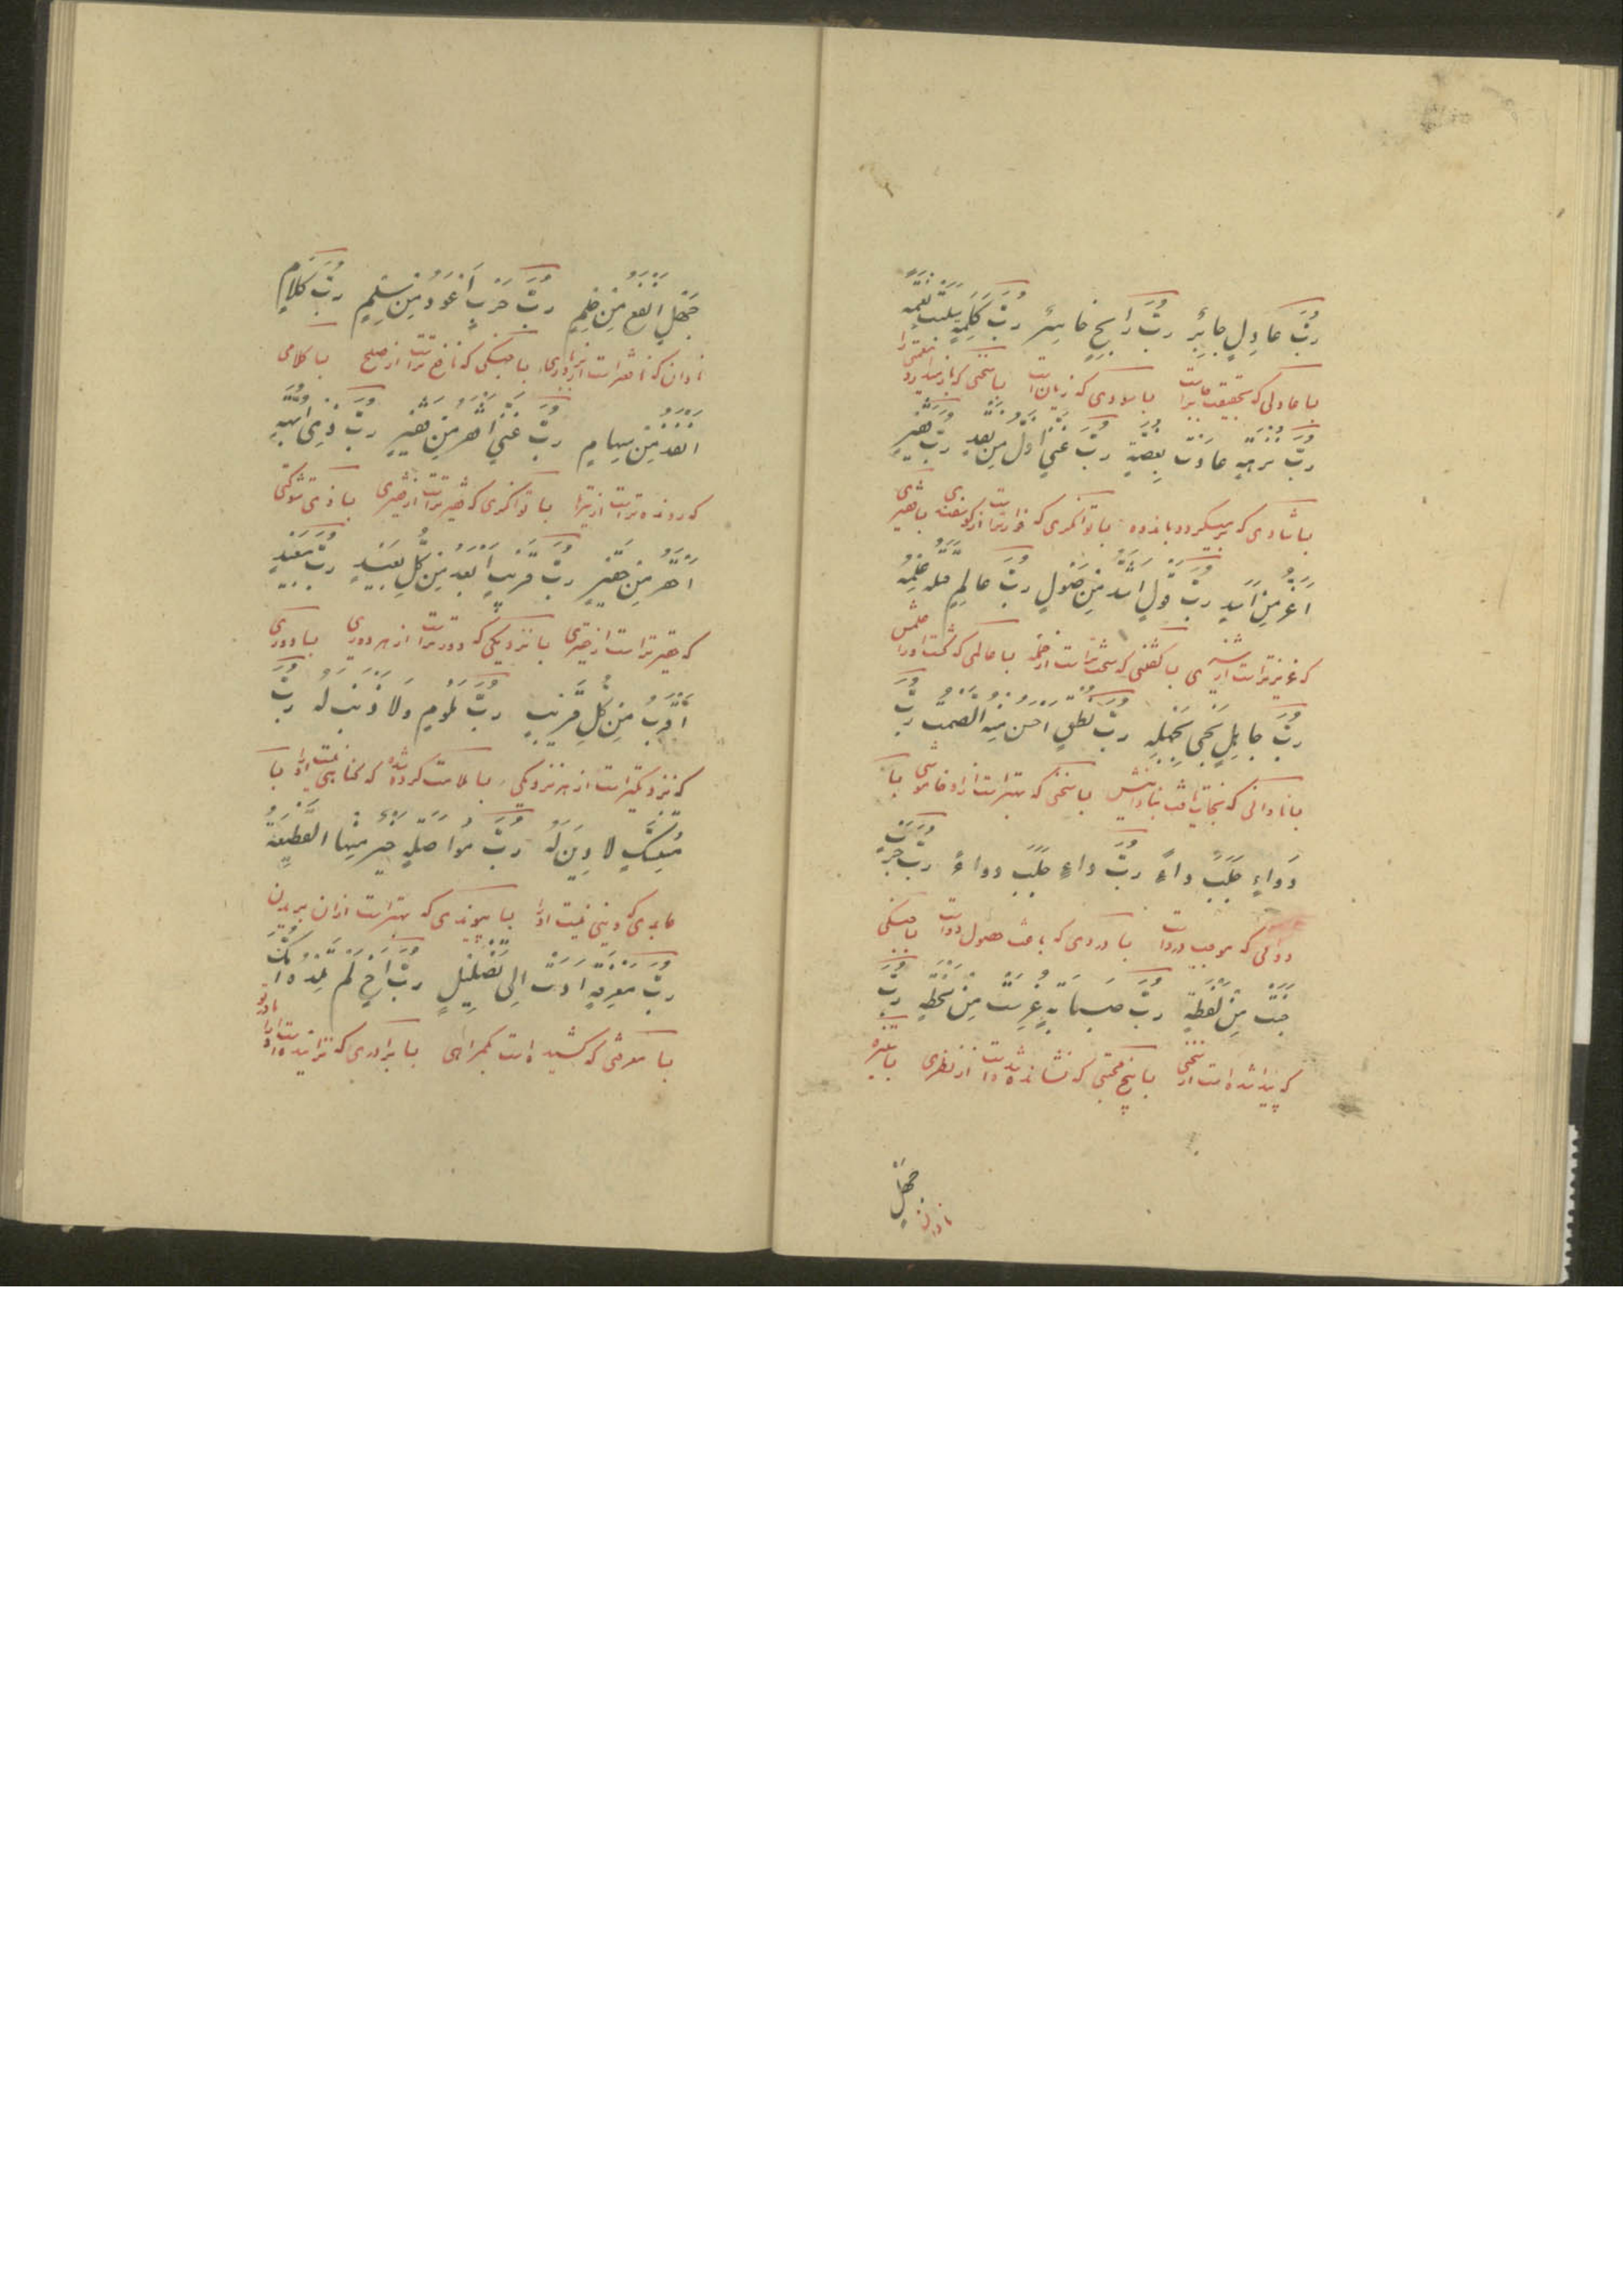 رُبَّ عَادِلٍ جَائِرٌ رُبَّ رَابِحٍ خَاسِرٌ رُبَّ كَلِمَةٍ سَلَبَتْ نِعْمَةً
بسا عادلی که بتحقیقت جابر است بسا سودی که زیان است بسا سخنی که باز میدارد نعمتی را
رُبَّ نُزْهَةٍ عَادَتْ نُغْصَةً رُبَّ غَنِيٍّ أَذَلُّ مِنْ نَقَدٍ رُبَّ فَقِيرٍ
بسا شادی که برمیگردد باندوه بسا توانگری که خوارتر است از گوسفندی بسا فقیری
أَعَزُّ مِنْ أَسَدٍ رُبَّ قَوْلٍ أَشَدُّ مِنْ صَوْلٍ رُبَّ عَالِمٍ قتله عِلْمُهُ
که عزیزتر است از شیری بسا گفتنی که سخت تر است از حمله بسا عالمی که کشت او را علمش
رُبَّ جَاهِلٍ نَجَى بِجَهْلِهِ رُبَّ نُطْقٍ أَحْسَنُ مِنْهُ الصَّمْتُ رُبَّ
بسا نادانی که نجات یافت بنادانیش بسا سخنی که بهتر است از او خاموشی بسا
دَوَاءٍ جَلَبَ دَاءً رُبَّ دَاءٍ جَلَبَ دَوَاءً رُبَّ حَرْبٍ
دوائی که موجب درد است بسا دردی که باعث حصول دواست بسا جنگی
جُنِيَتْ مِنْ لَفْظَةٍ رُبَّ صَبَابَةٍ غُرِسَتْ مِنْ لَحْظَةٍ رُبَّ
که پیدا شده است از سخنی بسا محبتی که نشانده شده است از نظری بسا
جَهْلٍ
نادان
جَهْلٍ أَنْفَعُ مِنْ حِلْمٍ رُبَّ حَرْبٍ أَعْوَدُ مِنْ سِلْمٍ رُبَّ كَلَامٍ
نادان که نافعتر است از بردباری بسا جنگی که نافع تر است از صلح بسا کلامی
أَنْفَذُ مِنْ سِهَامٍ رُبَّ غَنِيٍّ أَفْقَرُ مِنْ فَقِيرٍ رُبَّ ذِي أُبَّهَةٍ
که رونده تر است از تیرها بسا توانگری که فقیرتر است از فقیری بسا ذی شوکتی
أَحْقَرُ مِنْ حَقِيرٍ رُبَّ قَرِيبٍ أَبْعَدُ مِنْ كُلِّ بَعِيدٍ رُبَّ بَعِيدٍ
که حقیرتر است از حقیری بسا نزدیکی که دورتر است از هر دوری بسا دوری
أَقْرَبُ مِنْ كُلِّ قَرِيبٍ رُبَّ مَلُومٍ وَلَا ذَنْبَ لَهُ رُبَّ
که نزدیکتر است از هر نزدیکی بسا ملامت کرده شده که گناهی نیست او را بسا
مُتَنَسِّكٍ لَا دِينَ لَهُ رُبَّ مُوَاصَلَةٍ خَيْرٌ مِنْهَا الْقَطِيعَةُ
عابدی که دینی نیست او را بسا پیوندی که بهتر است از آن بریدن
رُبَّ مَعْرِفَةٍ أَدَّتْ إِلَى تَضْلِيلٍ رُبَّ أَخٍ لَمْ تَلِدْهُ أُمُّكَ
بسا معرفتی که کشیده است بگمراهی بسا برادری که نزاییده است او را مادر تو